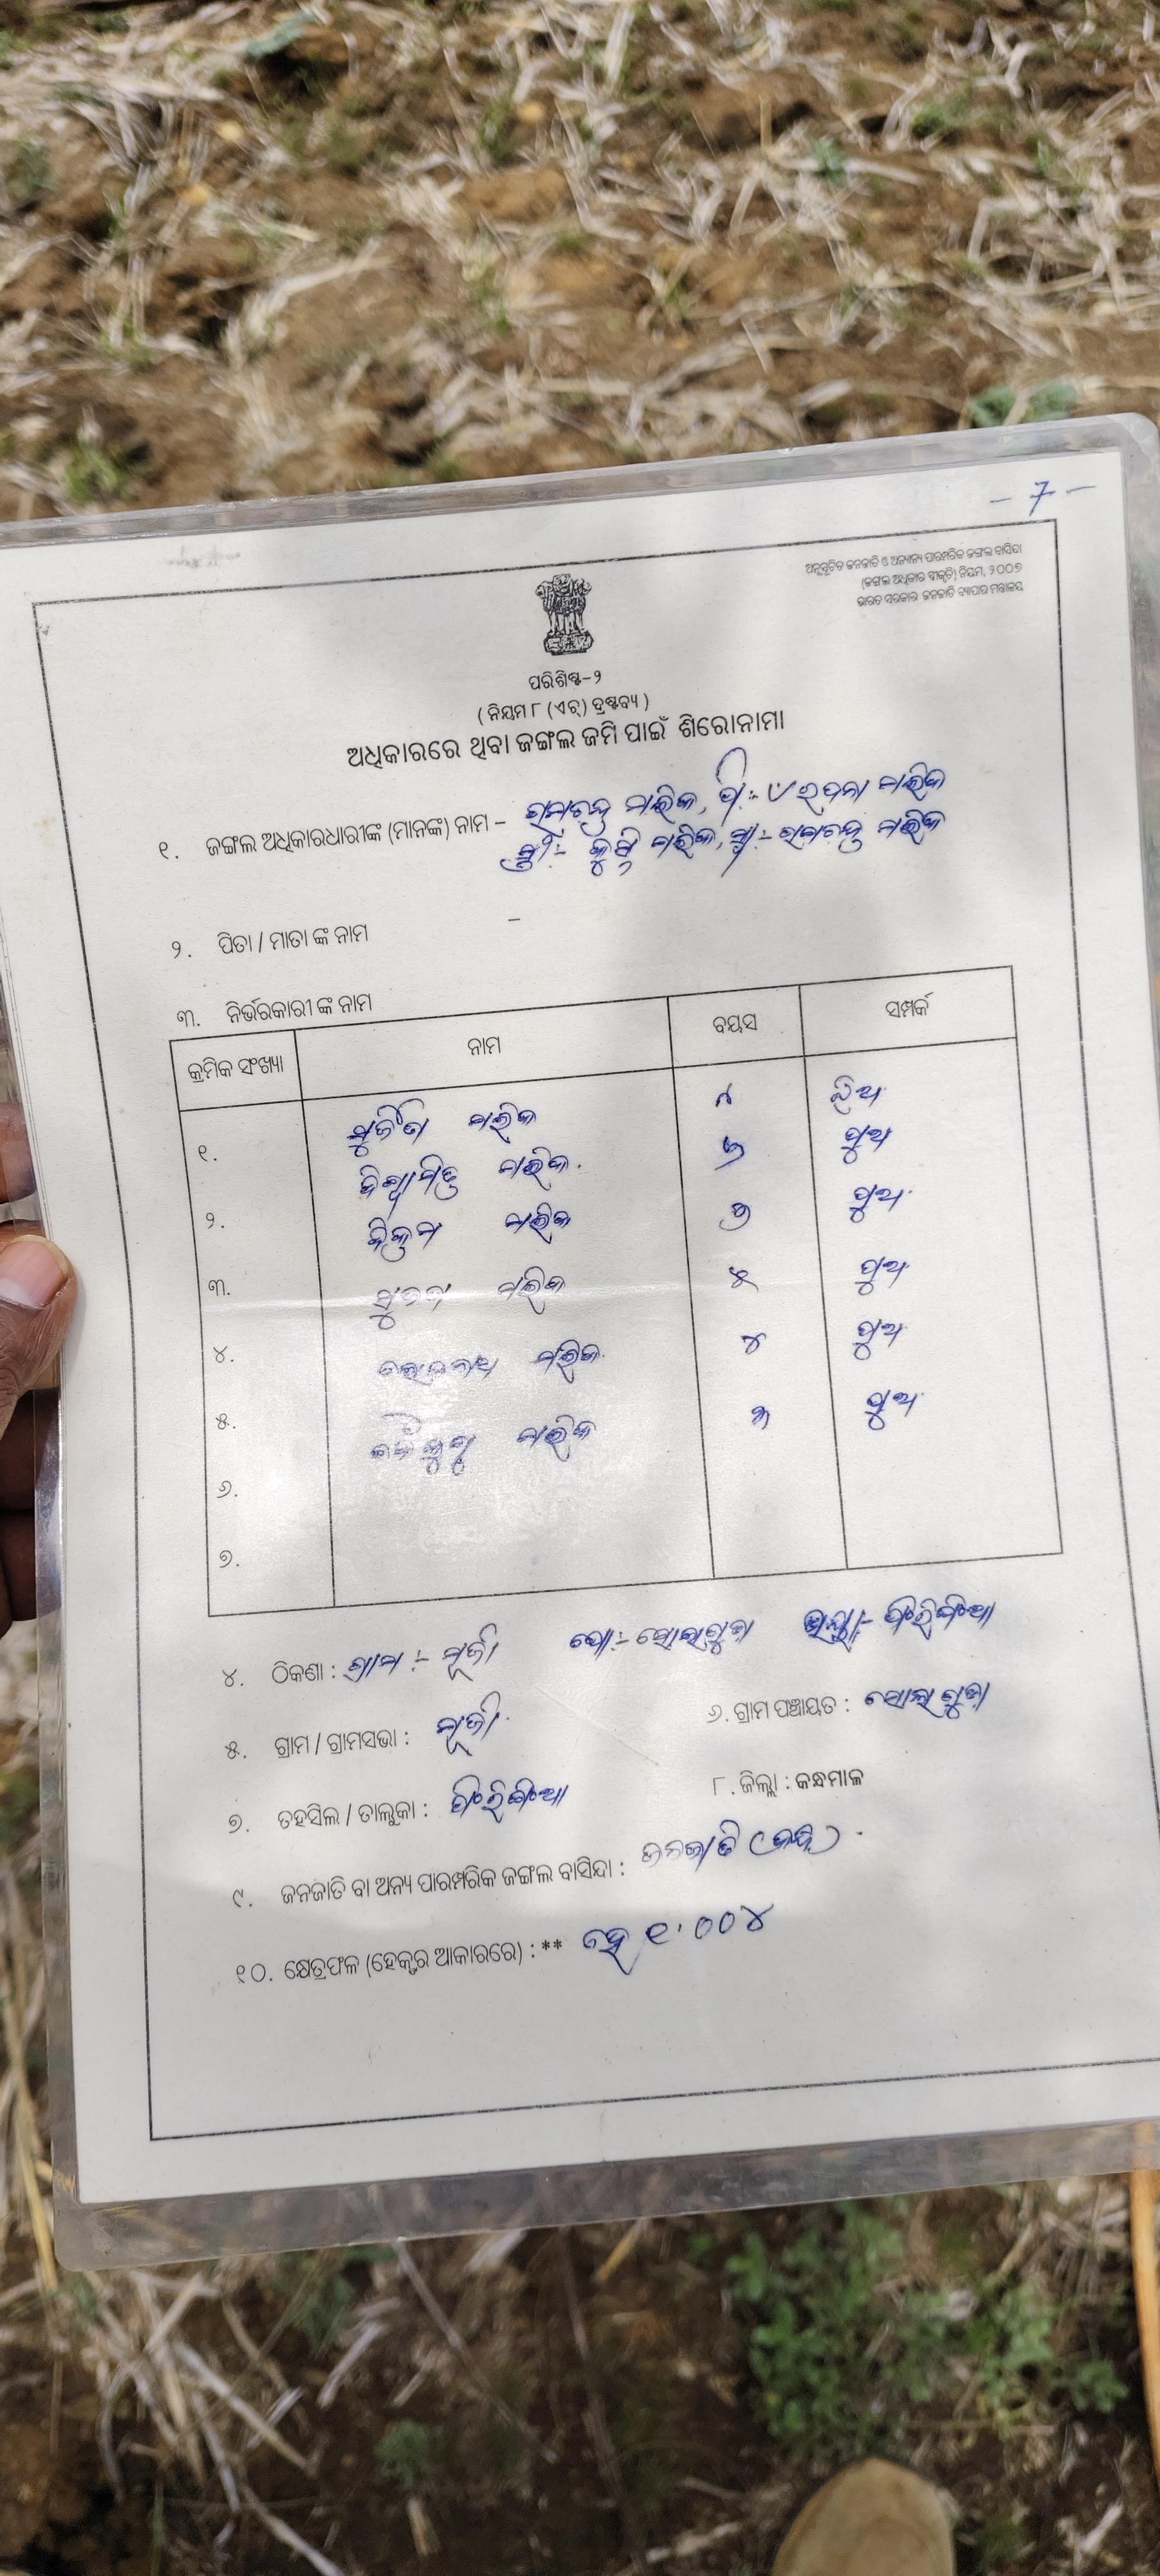 - 7 -
ଅନୁସୂଚିତ ଜନଜାତି ଓ ଅନ୍ୟାନ୍ୟ ପାରମ୍ପରିକ ଜଙ୍ଗଲ ବାସିନ୍ଦା
(ଜଙ୍ଗଲ ଅଧିକାର ସ୍ବୀକୃତି) ନିୟମ, ୨୦୦୭
ଭାରତ ସରକାର ଜନଜାତି ବ୍ୟାପାର ମନ୍ତ୍ରାଳୟ
ପରିଶିଷ୍ଟ-୨
( ନିୟମ ୮ (ଏଚ୍) ଦ୍ରଷ୍ଟବ୍ୟ )
ଅଧିକାରରେ ଥିବା ଜଙ୍ଗଲ ଜମି ପାଇଁ ଶିରୋନାମା
୧. ଜଙ୍ଗଲ ଅଧିକାରଧାରୀଙ୍କ (ମାନଙ୍କ) ନାମ - ରାମଚନ୍ଦ୍ର ମଲିକ, ପି:- ମଲିକ
ସ୍ତ୍ରୀ:- ମଲିକ, ସ୍ୱା:- ରାମଚନ୍ଦ୍ର ମଲିକ
୨. ପିତା / ମାତା ଙ୍କ ନାମ -
୩. ନିର୍ଭରକାରୀ ଙ୍କ ନାମ
କ୍ରମିକ ସଂଖ୍ୟା ନାମ ବୟସ ସମ୍ପର୍କ
୧. ମଲିକ ଝିଅ
୨. ବିଶ୍ୱାମିତ୍ର ମଲିକ ପୁଅ
୩. ବିକ୍ରମ ମଲିକ ୬ ପୁଅ
୪. ମଲିକ ୫ ପୁଅ
୫. ମଲିକ ୪ ପୁଅ
୬. ମଲିକ ୩ ପୁଅ
୭.
୪. ଠିକଣା : ଗ୍ରାମ :- ପୋ:- ଥାନା:- ଫିରିଙ୍ଗିଆ
୫. ଗ୍ରାମ / ଗ୍ରାମସଭା :
୬. ଗ୍ରାମ ପଞ୍ଚାୟତ :
୭. ତହସିଲ / ତାଲୁକା : ଫିରିଙ୍ଗିଆ
୮. ଜିଲ୍ଲା : କନ୍ଧମାଳ
୯. ଜନଜାତି ବା ଅନ୍ୟ ପାରମ୍ପରିକ ଜଙ୍ଗଲ ବାସିନ୍ଦା : ଜନଜାତି (କନ୍ଧ)
୧୦. କ୍ଷେତ୍ରଫଳ (ହେକ୍ଟର ଆକାରରେ) : ** ହେ ୧.୦୦୪